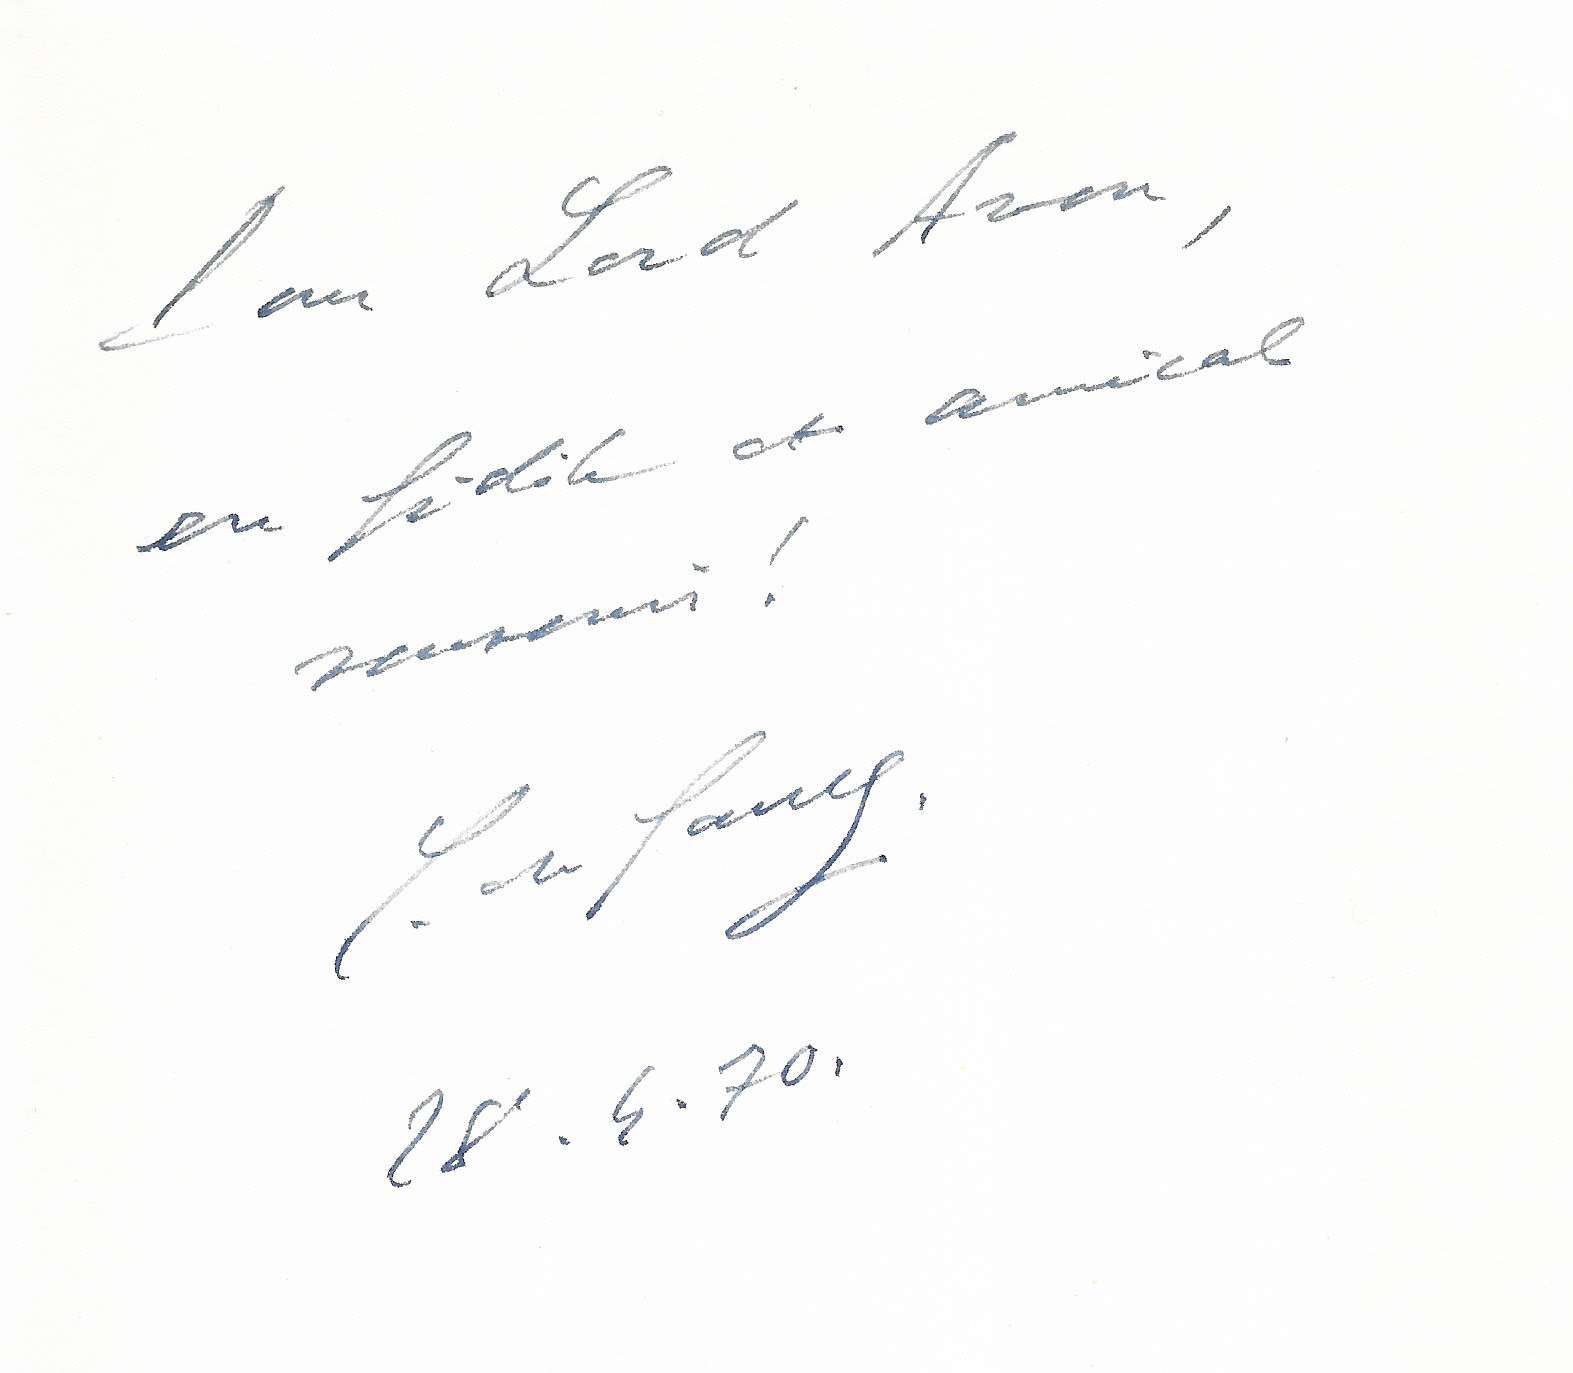 Pour Lord Avon,
en fidèle et amical
souvenir !
28.4.70.